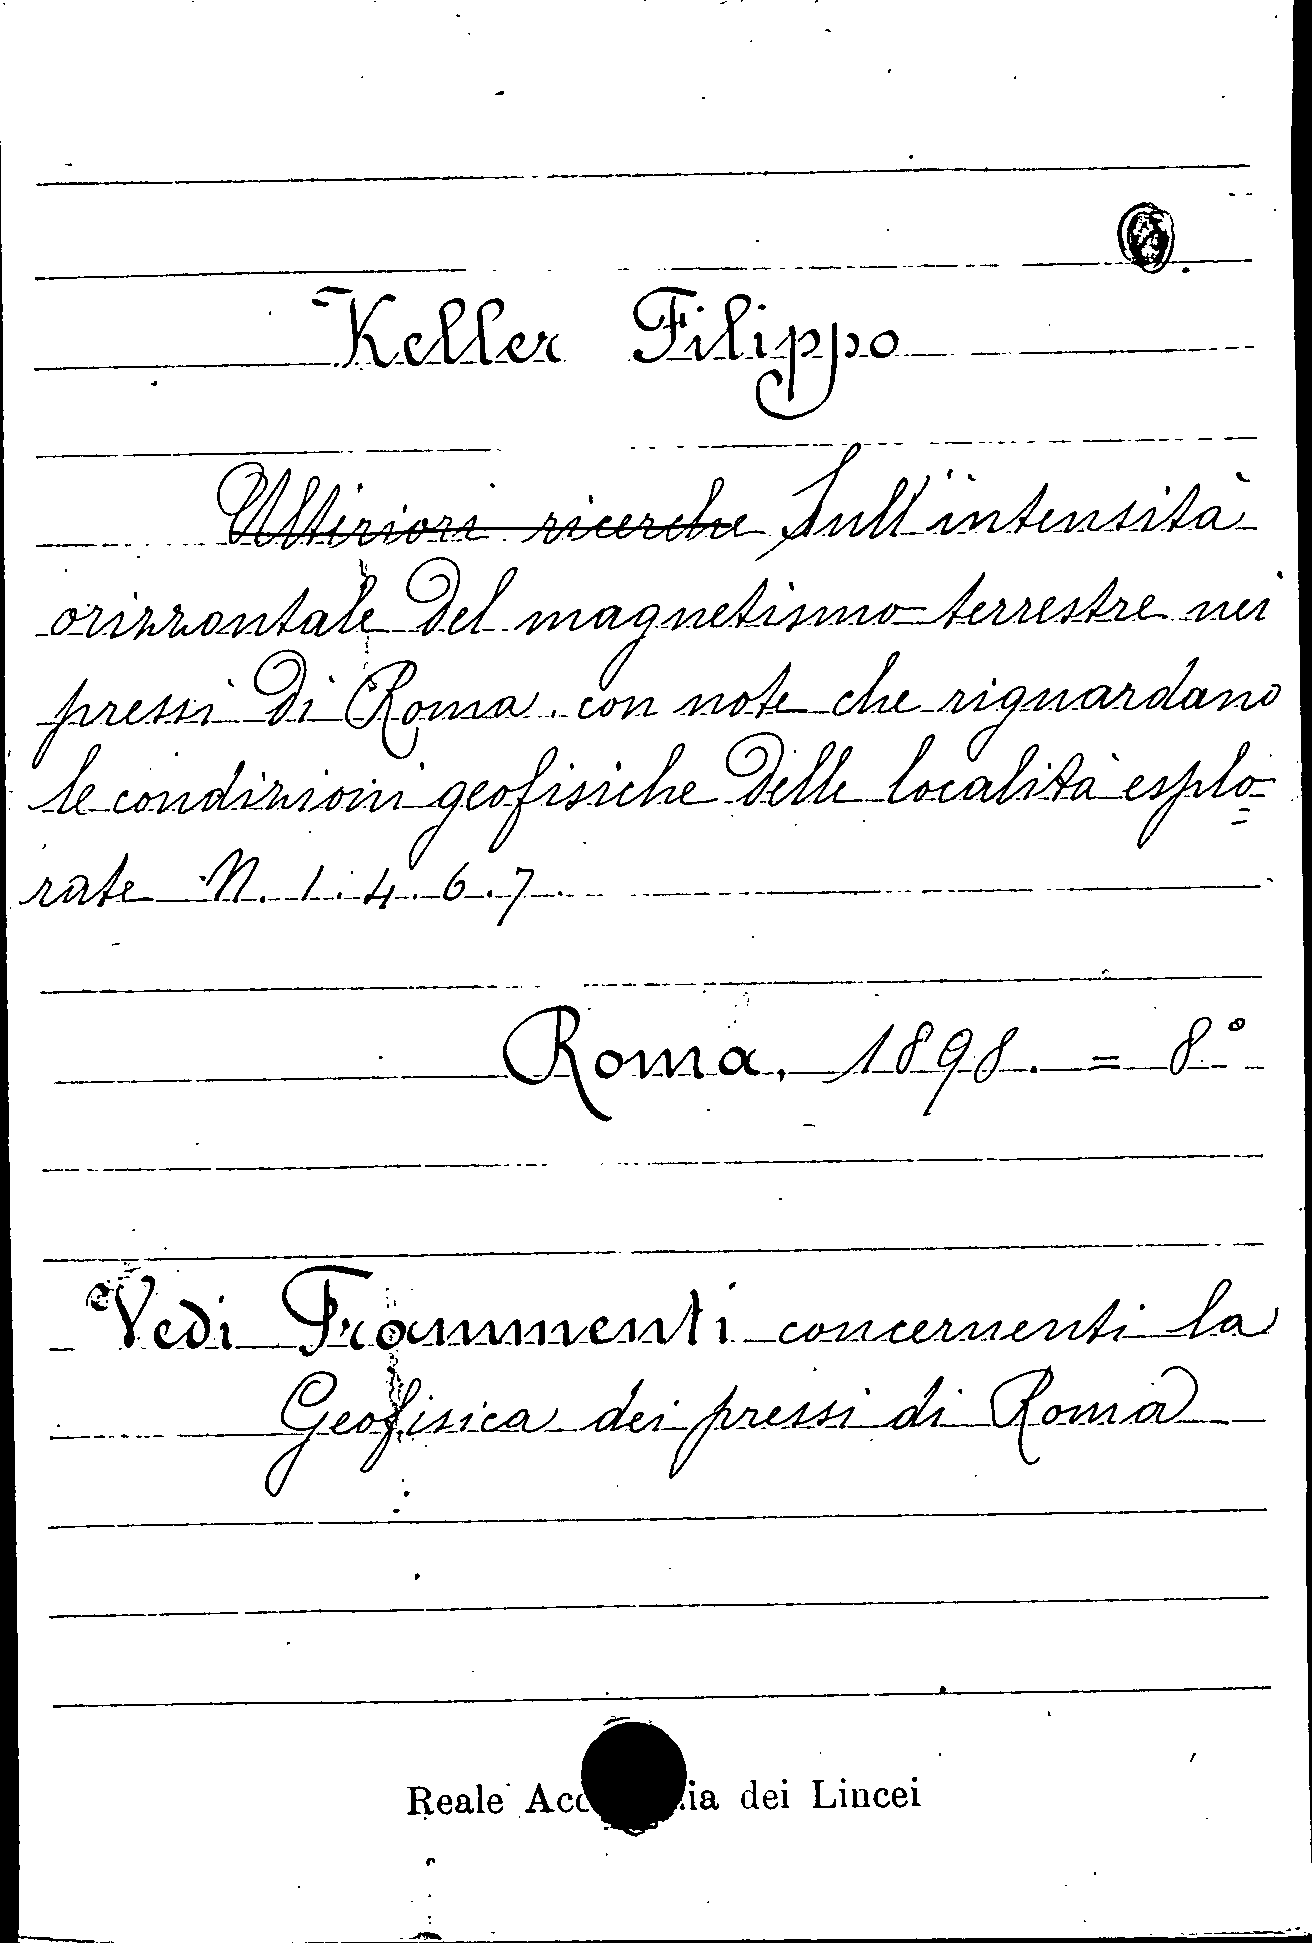 Keller Filippo
Ulteriori ricerche Sull'intensità
orizzontale del magnetismo terrestre nei
pressi di Roma con note che riguardano
le condizioni geofisiche delle località esplo=
rate N. 1. 4. 6. 7.
Roma, 1898. = 8.°
Vedi Frammenti concernenti la
Geofisica dei pressi di Roma
Reale dei Lincei